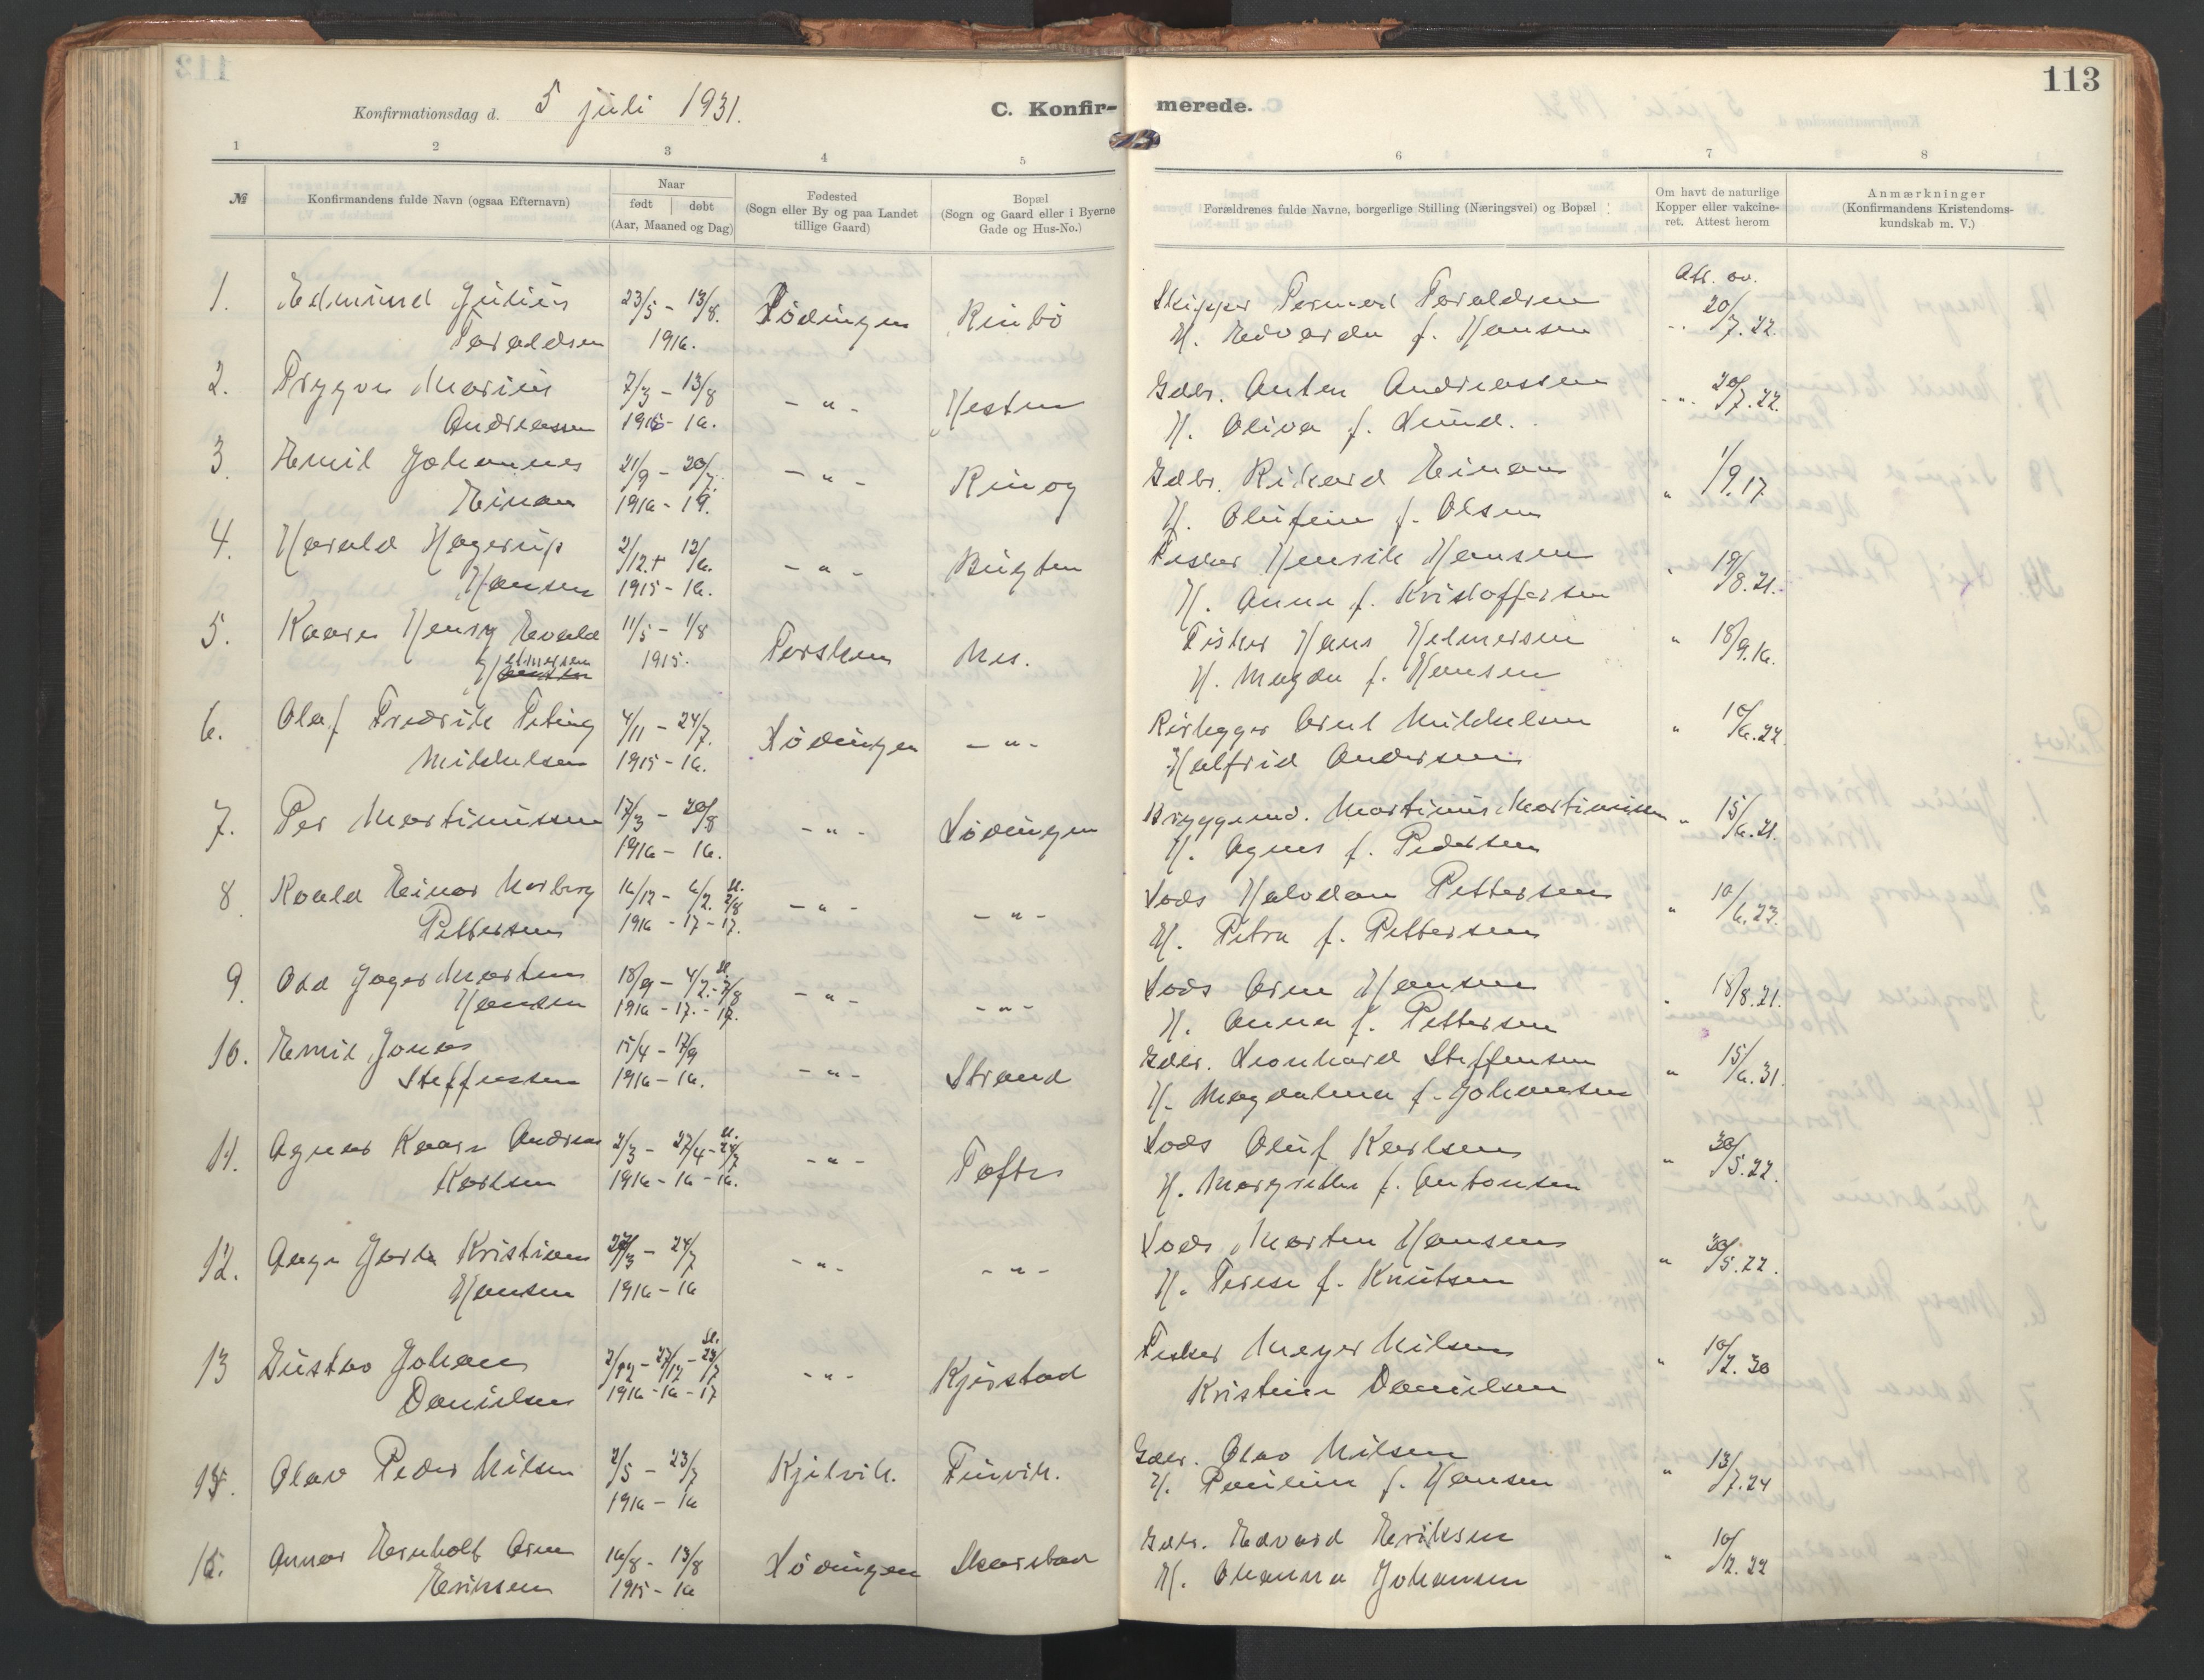 113
Konfirmationsdag d. 5 juli 1931.
C. Konfir-
merede.
1 2 3 4 5 6 7 8
№
Konfirmandens fulde Navn (ogsaa Efternavn)
Naar
født døbt
(Aar, Maaned og Dag)
Fødested
(Sogn eller By og paa Landet
tillige Gaard)
Bopæl
(Sogn og Gaard eller i Byerne
Gade og Hus-No.)
Forældrenes fulde Navne, borgerlige Stilling (Næringsvei) og Bopæl
Om havt de naturlige
Kopper eller vakcine-
ret. Attest herom
Anmærkninger
(Konfirmandens Kristendoms-
kundskab m. V.)
Att. av.
1. Edmund Julius 23/5 - 13/8. Lødingen Rinbø Skipper Tormod Toraldsen 20/7.22.
Toraldsen 1916. H. Edvarda f. Hansen
2. Trygve Marius 7/3 - 13/8 - " - Vesten Gdbr. Anton Andreassen - " - 20/7.22.
Andreassen 1916 - 16. H. Oliva f. Lund.
3. Emil Johannes 21/9 - 20/7. - " - Rinøy Gdbr. Rikard Einan " 1/9.17
Einan 1916 - 19. H. Olufine f. Olsen
4. Harald Hagerup 2/12 + 12/6. - " - Bugten Fisker Henrik Hansen " 19/8.21.
Hansen 1915 - 16. H. Anna f. Kristoffersen
5. Kaare Henry Evald 11/5 - 1/8 Torsken Nes. Fisker Hans Helmersen " 18/9.16.
Helmersen 1915. H. Magda f. Hansen
6. Olaf Fredrik Peting 4/11 - 24/7. Lødingen - " - Rørlegger Arnt Mikkelsen " 10/6.22.
Mikkelsen 1915 - 16. Halfrid Andersen
7. Per Martinussen 17/3 - 20/8 - " - Lødingen Bryggemd. Martinus Martinussen " 15/6.21.
1916 - 16. H. Agnes f. Pedersen
8. Roald Einar Norberg 16/12 - 6/2. st. 2/8 - " - - " - Lods Halvdan Pettersen " 10/6.23.
Pettersen 1916 - 17 - 17. H. Petra f. Pettersen
9. Odd Jager Morten 18/9 - 4/2. - st. 2/8 - " - - " - Lods Arne Hansen " 18/8.21.
Hansen 1916 - 17. - 17. H. Anna f. Pettersen
10. Emil Jonas 15/4 - 17/9 - " - Strand Gdbr. Leonhard Steffensen " 15/6.31.
Steffensen 1916 - 16. H. Magdalena f. Johansen
11. Agnar Kaare Andreas 2/3 - 27/4 - st. 24/7 - " - Tofter Lods Oluf Karlsen " 30/5.22.
Karlsen 1916 - 16 - 16. H. Margrethe f. Antonsen
12. Aage Jarle Kristian 27/3 - 24/7 - " - - " - Lods Morten Hansen " 30/5.22.
Hansen 1916 - 16 H. Terese f. Knutsen
13 Gustav Johan 2/12 - 27/12 - st. 23/7 - " - Kjerstad Fisker Meyer Nilsen " 10/2.30
Danielsen 1916 - 16 - 17 Kristine Danielsen
15. Olav Peder Nilsen 2/5 - 23/7 Kjelvik. Finvik. Gdbr. Olav Nilsen " 13/7.24
1916 - 16 H. Pauline f. Hansen
16. Annar Ernholf Arne 16/8 - 13/8 Lødingen Skarstad Gdbr. Edvard Eriksen " 10/12.22
Eriksen 1915 - 16 H. Ohanna Johansen